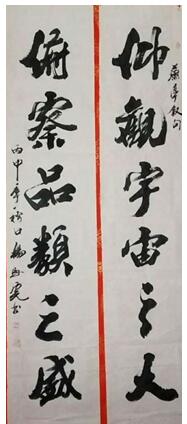 蘭亭叙句
仰觀宇宙之大
俯察品類之盛
丙申年秋日楊